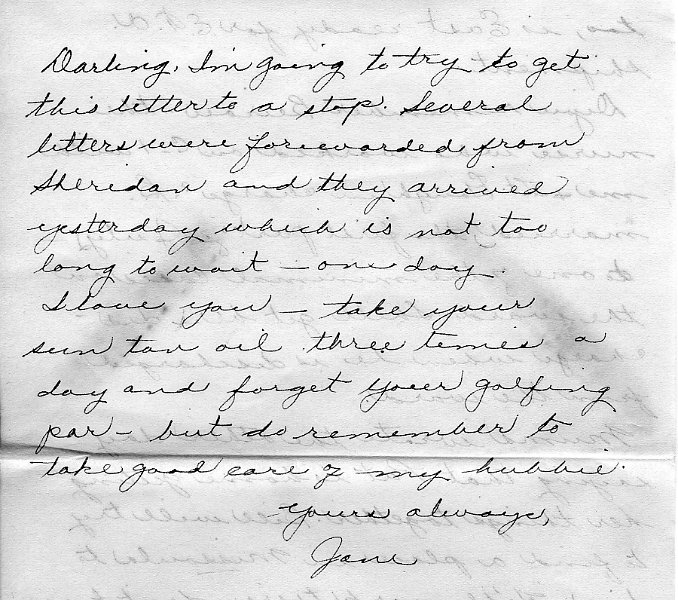 Darling, I'm going to try to get
this letter to a stop. Several
letters were forewarded from
Sheridan and they arrived
yesterday which is not too
long to wait — one day.
I love you — take your
sun tan oil three times a
day and forget your golfing
par — but do remember to
take good care of my hubbie.
Yours always,
Jane